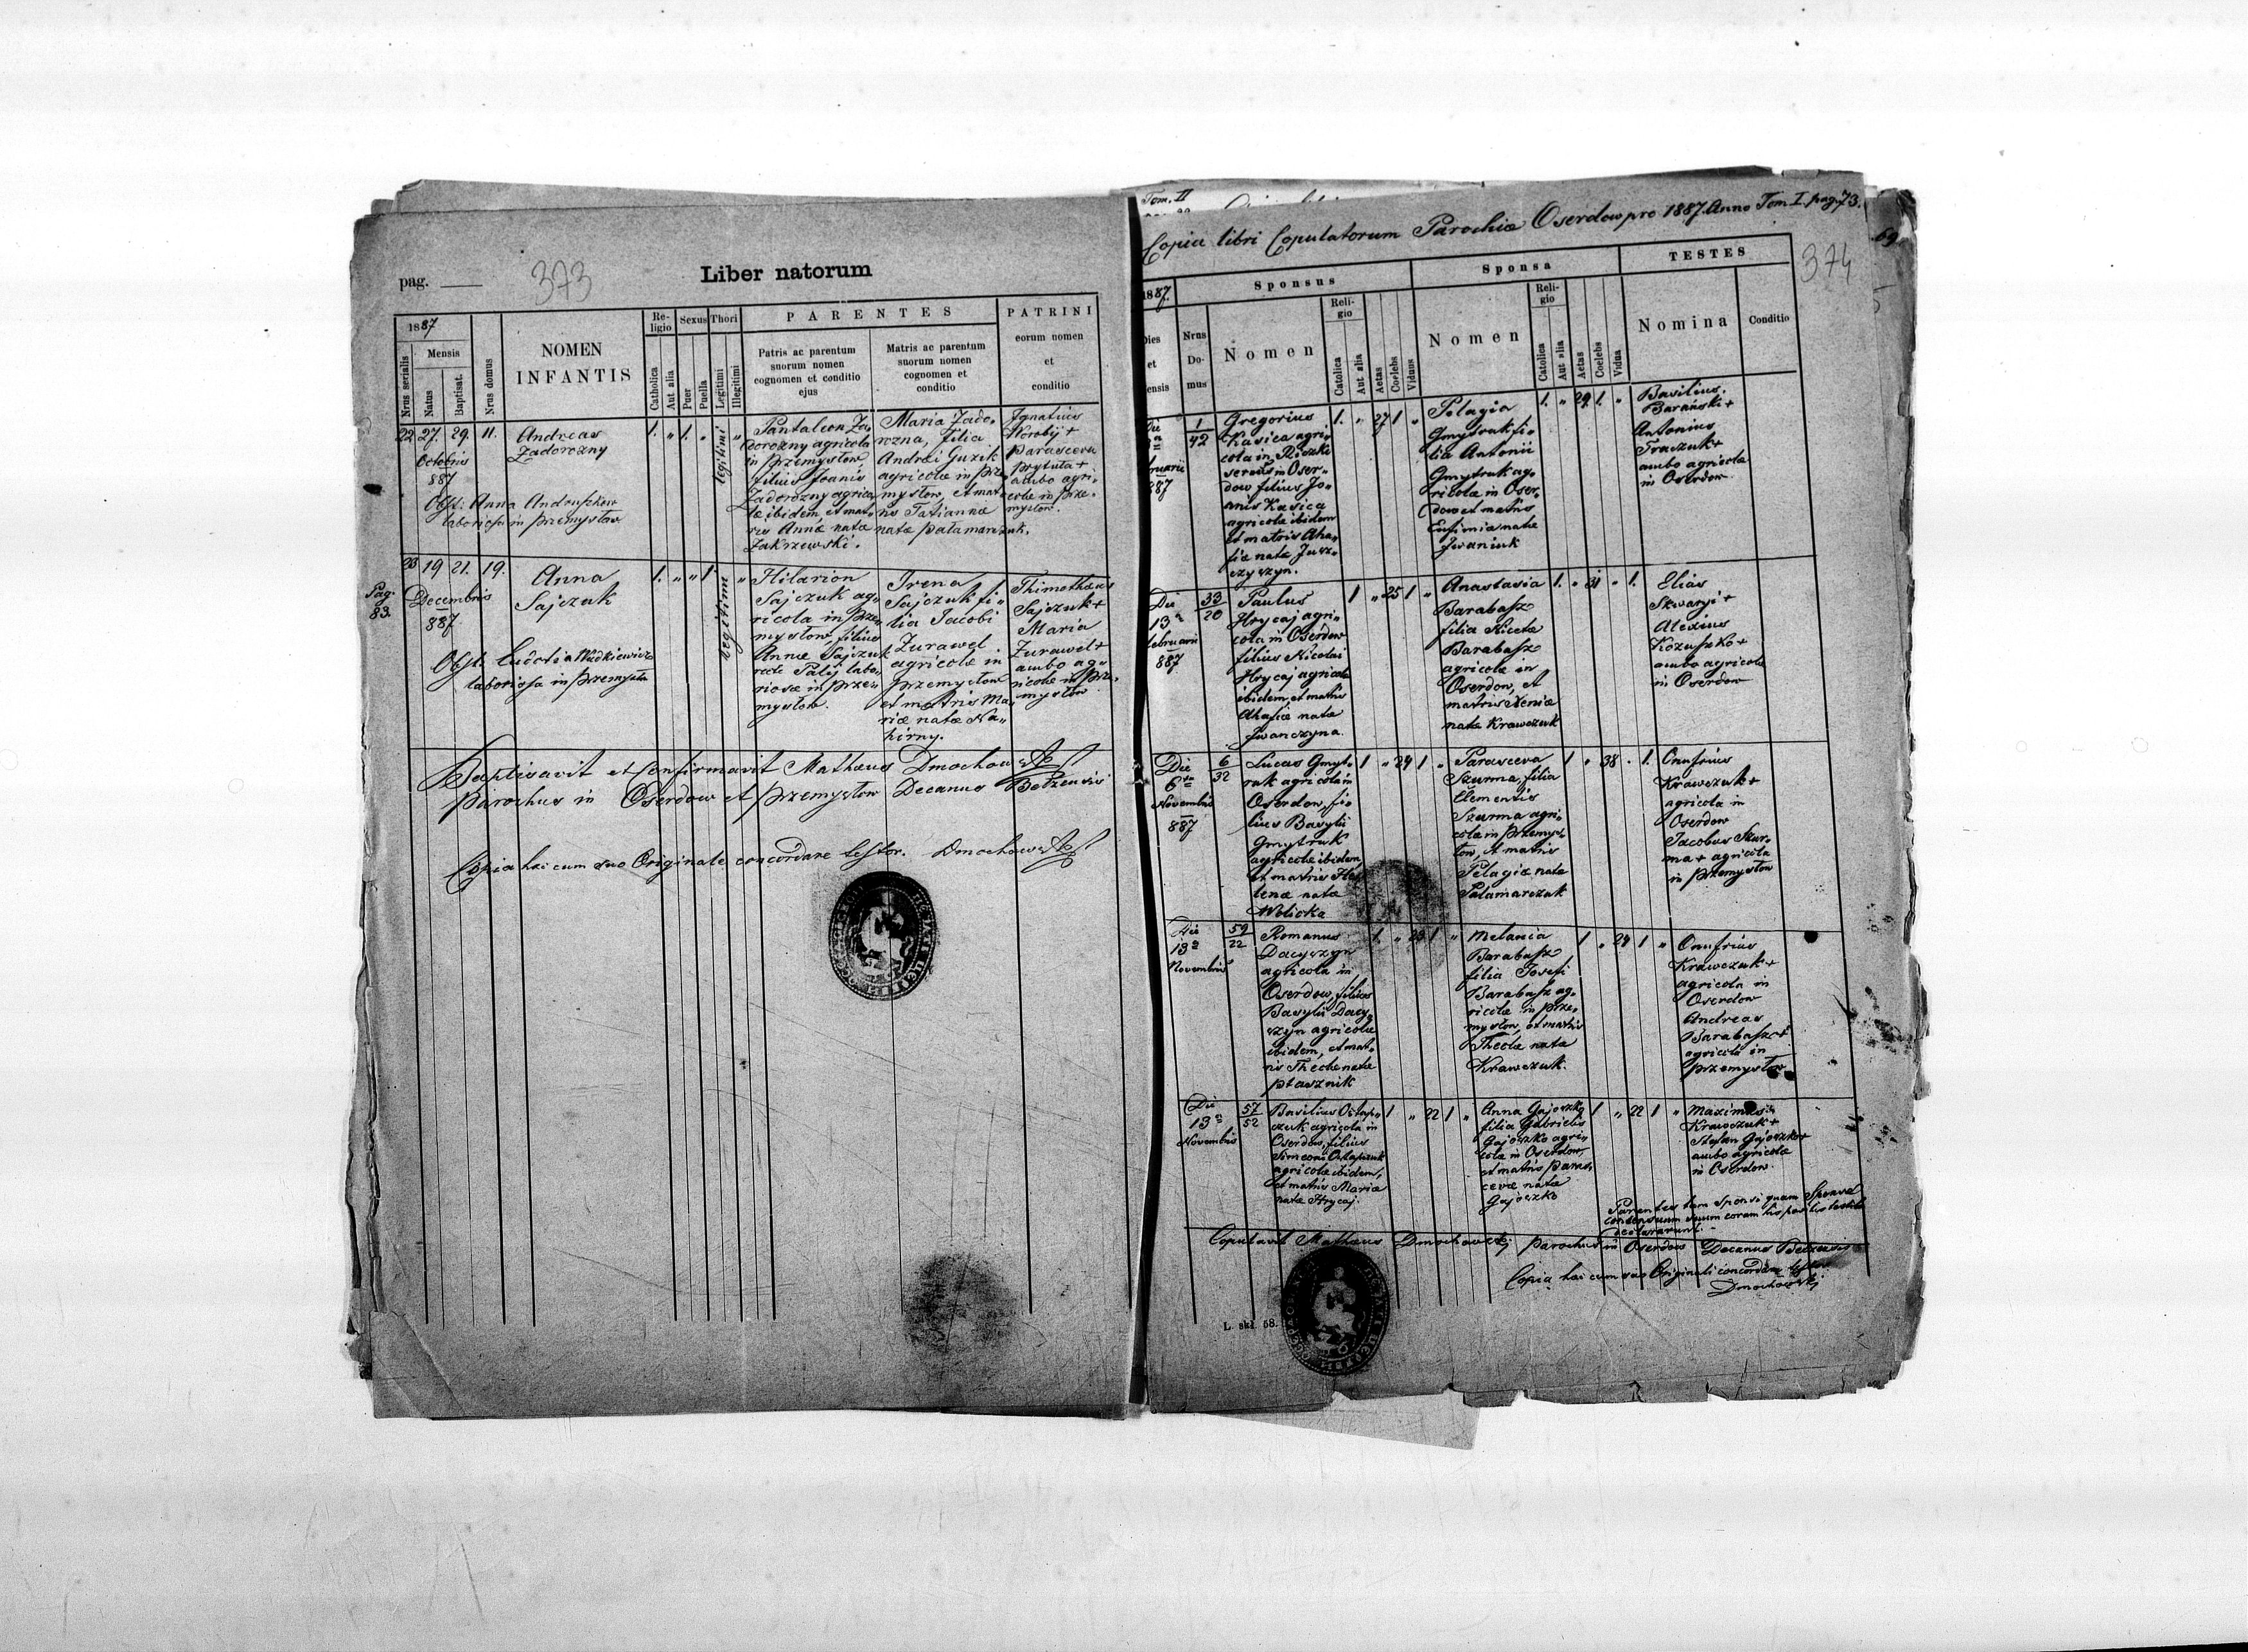 pag.
373
Liber natorum
1887
Nrus serialis
Mensis
Natus
Baptisat.
Nrus domus
NOMEN
INFANTIS
Re-
ligio
Catholica
Aut alia
Sexus
Puer
Puella
Thori
Legitimi
Illegitimi
PARENTES
Patris ac parentum
suorum nomen
cognomen et conditio
ejus
Matris ac parentum
suorum nomen
cognomen et
conditio
PATRINI
eorum nomen
et
conditio
22 27. 29. 11.
Octobris
887
Andreas
Zadorozny
Obst: Anna Andruschow
laboriosa in Przemysłow
1. " 1. " legitimi "
Pantaleon Za-
dorozny agricola
in Przemysłow
filius Joanis
Zadorozny agrico-
lae ibidem, et mat-
ris Annae natae
Zakrzewski.
Maria Zado-
rozna, filia
Andrei Guzik
agricolae in Prze-
mysłow, et mat-
ris Tatiannae
natae Pałamarczuk.
Ignatius
Worobij +
Parasceva
Prytuła +
ambo agri-
colae in Prze-
mysłow.
Pag.
83.
23 19 21. 19.
Decembris
887
Anna
Sajczuk
Obst. Eudocia Wudkiewicz
laboriosa in Przemysłow
1. " " 1. legitimi "
Hilarion
Sajczuk ag-
ricola in Prze-
mysłow filius
Annae Sajczuk
recte Palij labo-
riosae in Prze-
mysłow.
Irena
Sajczuk fi-
lia Jacobi
Zurawel
agricolae in
Przemysłow
et matris Ma-
riae natae Na-
hirny.
Thimotheus
Sajczuk +
Maria
Zurawel +
ambo ag-
ricolae in Prze-
mysłow
Baptisavit et Confirmavit Matheus Dmochowski
Parochus in Oserdow et Przemysłow Decanus Bełzensis
Copia haec cum suo Originale concordare testor. Dmochowski
Tom. II
Copia libri Copulatorum Parochiae Oserdow pro 1887. Anno Tom I. pag. 73.
69
374
1887.
Dies
et
mensis
Nrus
Do-
mus
Sponsus
Nomen
Reli-
gio
Catholica
Aut alia
Aetas
Coelebs
Viduus
Sponsa
Nomen
Reli-
gio
Catholica
Aut alia
Aetas
Coelebs
Vidua
TESTES
Nomina
Conditio
1
42
Gregorius
Kasica agri-
cola in Rzeszki
servus in Oser-
dow filius Jo-
anis Kasica
agricolae ibidem
et matris Aha-
fiae natae Jusz-
czyszyn.
1. " 27 1 "
Pelagia
Gmytruk fi-
lia Antonii
Gmytruk ag-
ricolae in Oser-
dow et matris
Eufimia natae
Iwaniuk
1. " 29 1. "
Basilius
Barański +
Antonius
Traczuk +
ambo agricolae
in Oserdow.
Die
13a
februarii
887
33
20
Paulus
Hrycaj agri-
cola in Oserdow
filius Nicolai
Hrycaj agricolae
ibidem, et matris
Ahafiae natae
Iwanczyna.
1 " 25 1 "
Anastasia
Barabasz
filia Nicetae
Barabasz
agricolae in
Oserdow, et
matris Xeniae
natae Krawczuk
1. " 31 " 1.
Elias
Skwaryi +
Alexius
Kozuszko +
ambo agricolae
in Oserdow
Die
6ta
Novembris
887
6
32
Lucas Gmyt-
ruk agricola in
Oserdow, fi-
lius Basylii
Gmytruk
agricolae ibidem,
et matris He-
lenae natae
Wolicka
1 " 24 1 "
Parasceva
Szurma, filia
Clementis
Szurma agri-
colae in Przemys-
łow, et matris
Pelagiae natae
Pałamarczuk
1 " 38 " 1.
Onufrius
Krawczuk +
agricola in
Oserdow
Jacobus Szur-
ma + agricola
in Przemysłow
Die
13a
Novembris
59
22
Romanus
Dacyszyn
agricola in
Oserdow, filius
Basylii Dacy-
szyn agricolae
ibidem, et mat-
ris Theclae natae
Ptasznik
1. " 23 1 "
Melania
Barabasz
filia Josefi
Barabasz ag-
ricolae in Prze-
mysłow, et matris
Theclae natae
Krawczuk.
1 " 24 1 "
Onufrius
Krawczuk +
agricola in
Oserdow
Andreas
Barabasz +
agricola in
Przemysłow
Die
13a
Novembris
57
52
Basilius Ostap-
czuk agricola in
Oserdow, filius
Simeoni Ostapczuk
agricolae ibidem,
et matris Mariae
natae Hrycaj.
1 " 22 1 "
Anna Gajoszko
filia Gabrielis
Gajoszko agri-
colae in Oserdow
et matris Paras-
cevae natae
Gajoszko
1 " 22 1 "
Maximus
Krawczuk +
Stefan Gajoszko +
ambo agricolae
in Oserdow.
Parentes tam Sponsi quam Sponsae
consensum suum coram his testibus
declararunt.
Copulavit Matheus Dmochowski Parochus in Oserdow Decanus Bełzensis
Copia haec cum suo Originali concordare testor
Dmochowski
L. skł. 58.